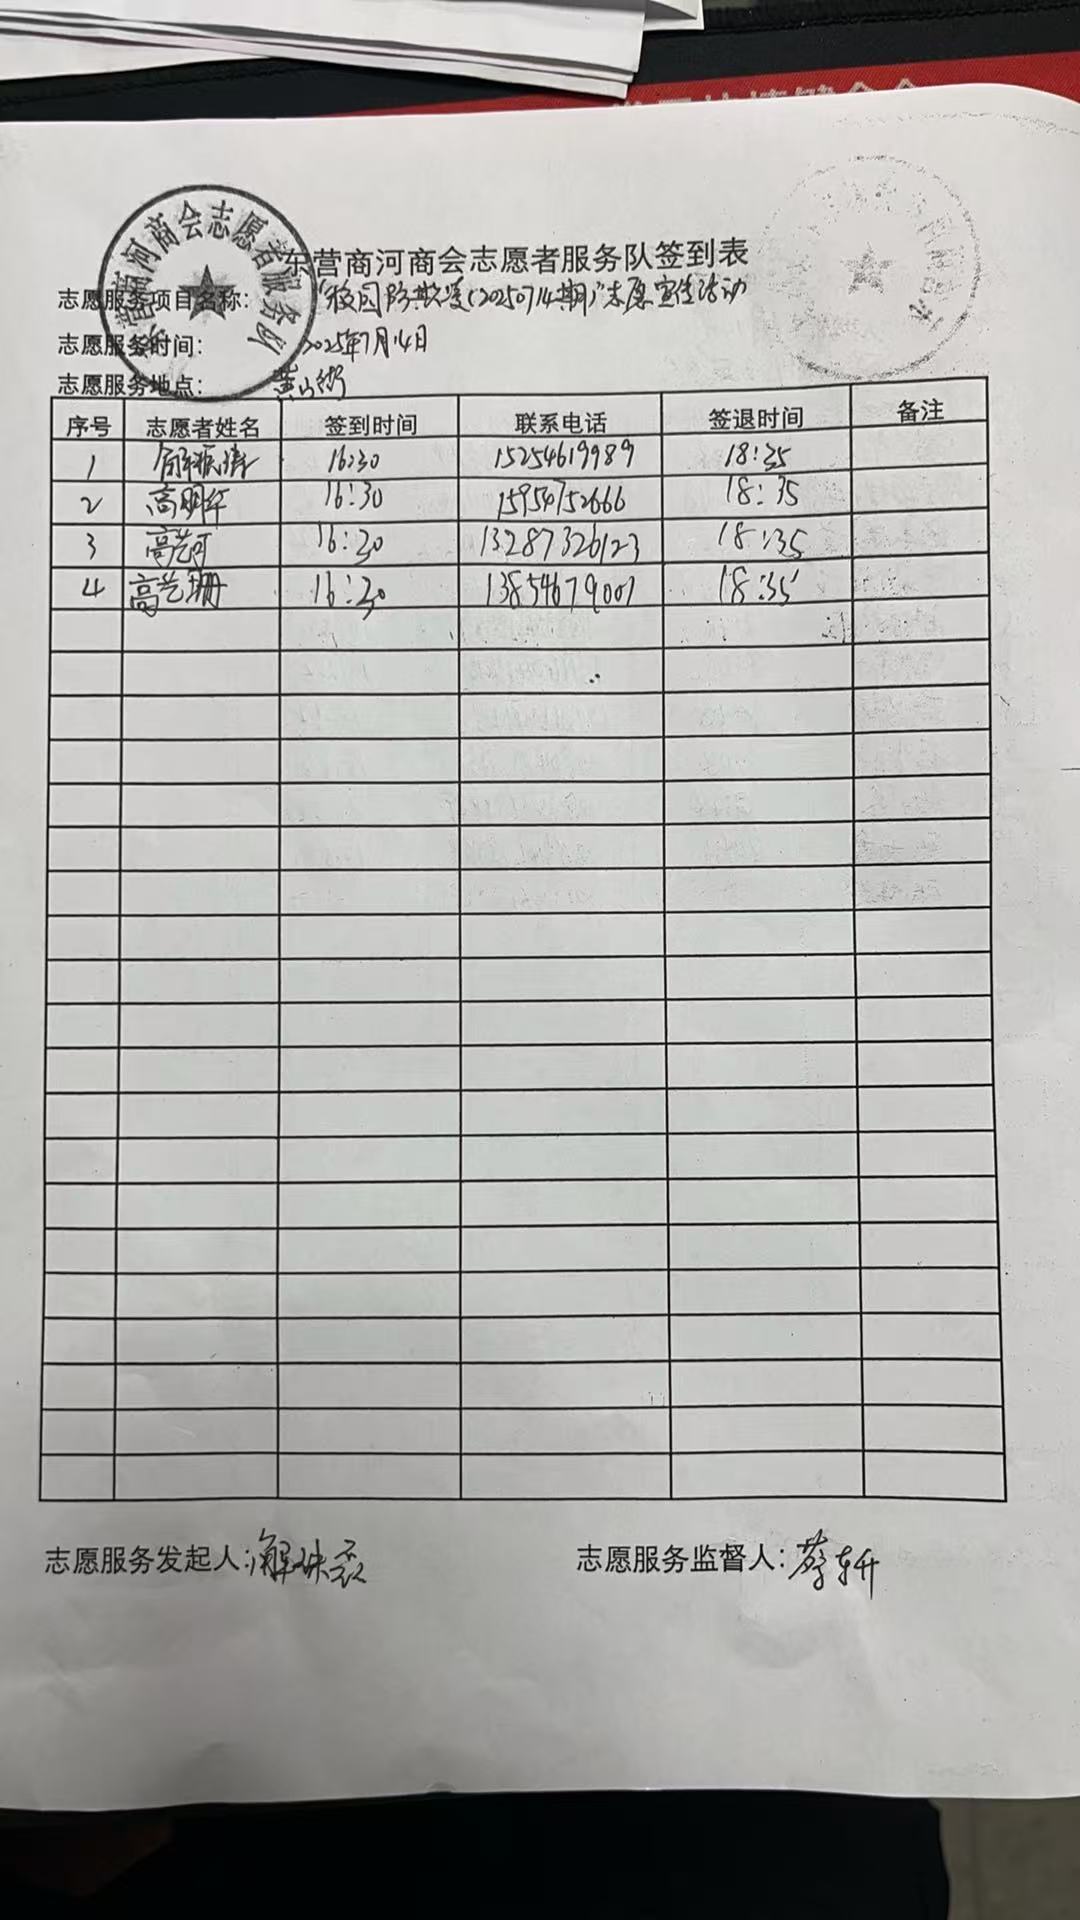 东营商河商会志愿者服务队
东营商河商会志愿者服务队签到表
志愿服务项目名称：“校园防欺凌（20250714期）”志愿宣传活动
志愿服务时间：2025年7月14日
志愿服务地点：黄山街
序号 志愿者姓名 签到时间 联系电话 签退时间 备注
1 16:30 15254619989 18:35
2 高明华 16:30 15954752666 18:35
3 高艺珂 16:30 13287326123 18:35
4 高艺珊 16:30 13854679001 18:35
志愿服务发起人： 志愿服务监督人：蔡轩